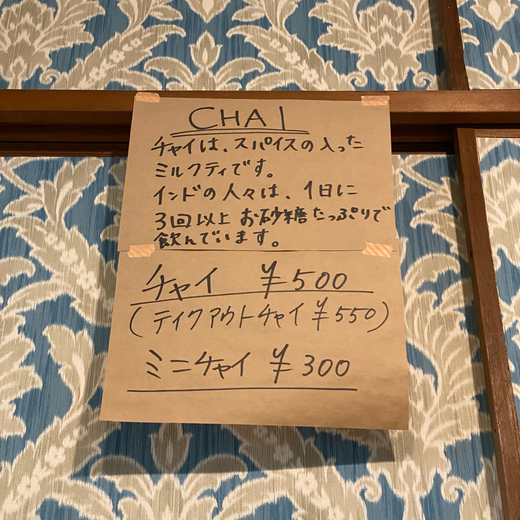 CHAI
チャイは、スパイスの入った
ミルクティです。
インドの人々は、1日に
3回以上お砂糖たっぷりで
飲んでいます。
チャイ ¥500
(テイクアウトチャイ¥550)
ミニチャイ ¥300